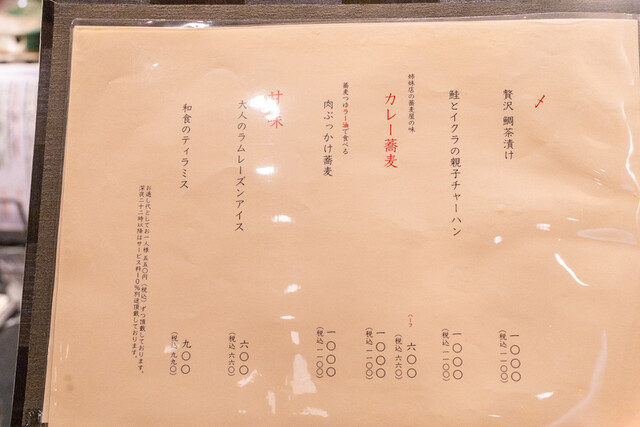 〆
贅沢 鯛茶漬け
一〇〇〇
(税込 一一〇〇)
鮭とイクラの親子チャーハン
一〇〇〇
(税込 一一〇〇)
姉妹店の蕎麦屋の味
カレー蕎麦
ハーフ
六〇〇
(税込 六六〇)
一〇〇〇
(税込 一一〇〇)
蕎麦つゆラー油で食べる
肉ぶっかけ蕎麦
一〇〇〇
(税込 一一〇〇)
甘味
大人のラムレーズンアイス
六〇〇
(税込 六六〇)
和食のティラミス
九〇〇
(税込 九九〇)
お通し代としてお一人様 五五〇円(税込)ずつ頂戴しております。
深夜二十二時以降はサービス料10%別途頂戴しております。